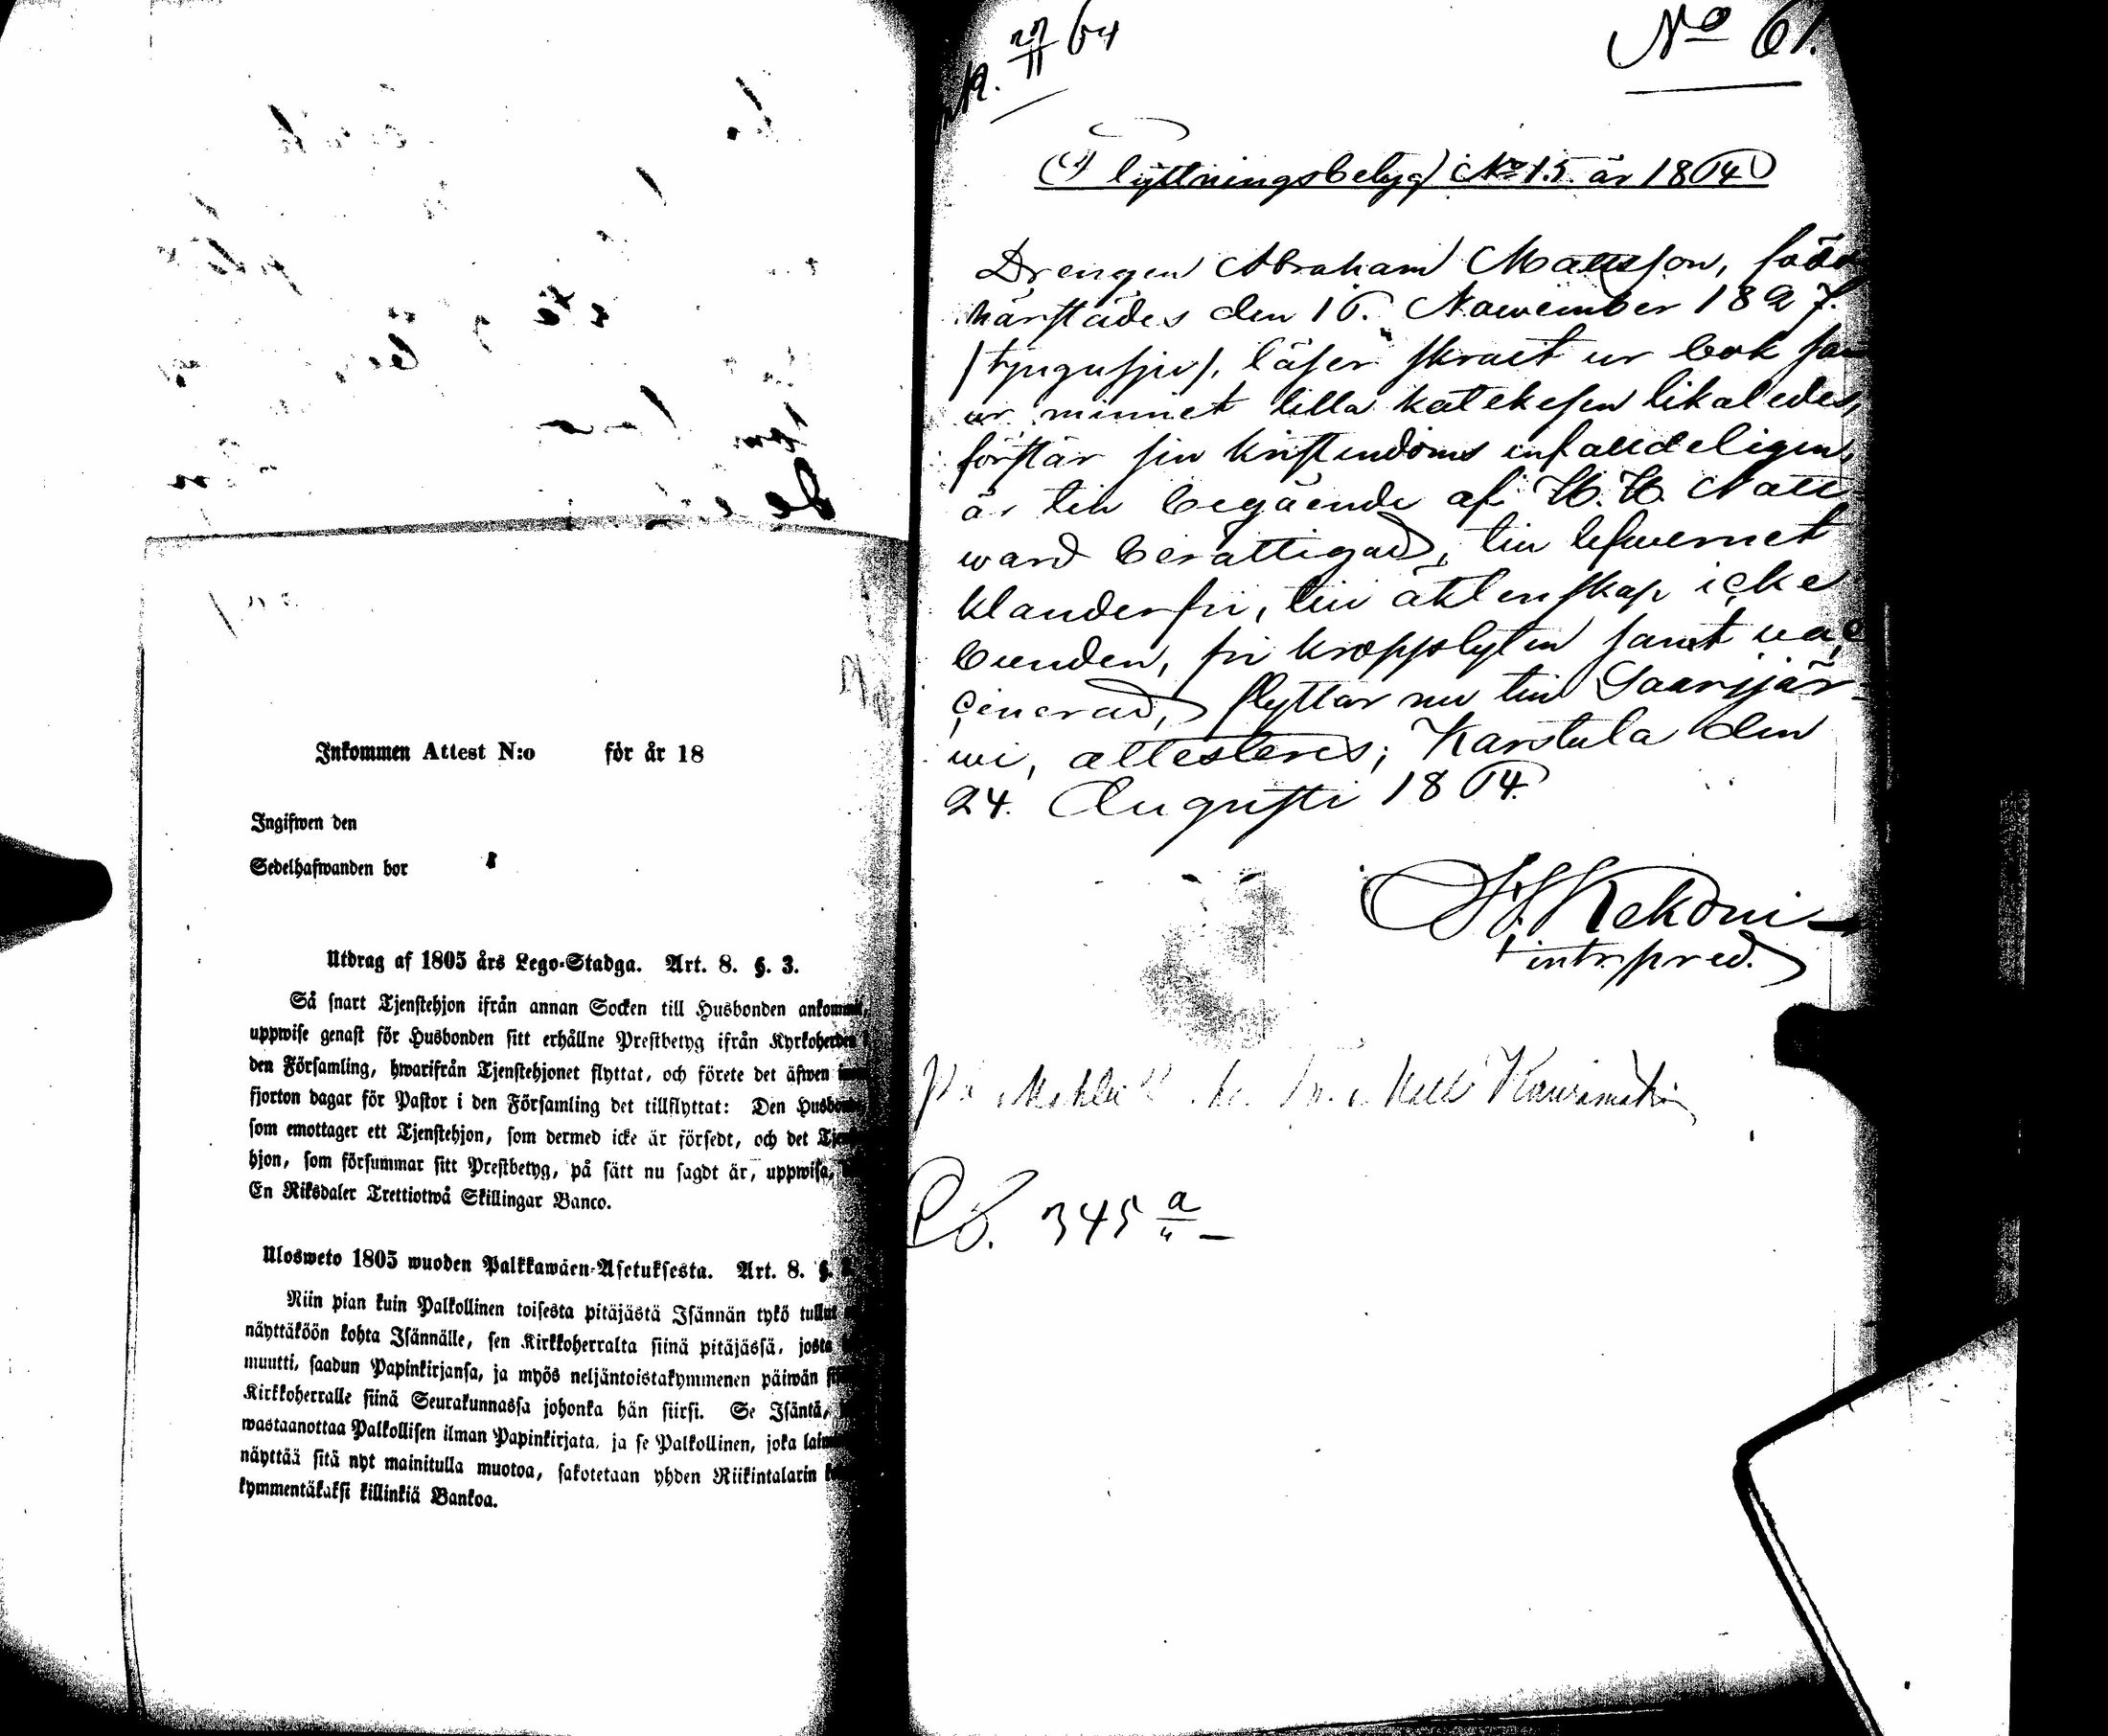 Inkommen Attest N:o för år 18
Ingifwen den
Sedelhafwanden bor
Utdrag af 1805 års Lego-Stadga. Art. 8. §. 3.
Så snart Tjenstehjon ifrån annan Socken till Husbonden ankommit,
uppwise genast för Husbonden sitt erhållne Prestbetyg ifrån Kyrkoherden i
den Församling, hwarifrån Tjenstehjonet flyttat, och förete det äfwen inom
fjorton dagar för Pastor i den Församling det tillflyttat: Den Husbonde
som emottager ett Tjenstehjon, som dermed icke är försedt, och det Tjenste
hjon, som försummar sitt Prestbetyg, på sätt nu sagdt är, uppwisa,
En Riksdaler Trettiotwå Skillingar Banco.
Ulosweto 1805 wuoden Palkkawäen-Asetuksesta. Art. 8. §.
Niin pian kuin Palkollinen toisesta pitäjästä Isännän tykö tullut
näyttäköön kohta Isännälle, sen Kirkkoherralta siinä pitäjässä, josta
muutti, saadun Papinkirjansa, ja myös neljäntoistakymmenen päiwän
Kirkkoherralle siinä Seurakunnassa johonka hän siirsi. Se Isäntä,
wastaanottaa Palkollisen ilman Papinkirjata, ja se Palkollinen, joka
näyttää sitä nyt mainitulla muotoa, sakotetaan yhden Riikintalarin
kymmentäkaksi killinkiä Bankoa.
19. 27/11 64
No 61.
Flyttningsbetyg No 15 år 1864
Drengen Abraham Mattsson, född
härstädes den 16. November 1827.
/tjugusju/, läser skraet ur bok sam
ur minnet lilla katekesen likaledes,
förstår sin kristendoms enfaldeligen,
är till begående af H. H. Natt-
ward berättigad, till lefwernet
klanderfri, till äktenskap icke
bunden, fri kroppslyten samt vac
cinerad, flyttar nu till Saarijär-
wi, attesteres; Karstula den
24. Augusti 1864.
Kekoni
intr. pred.
345 a